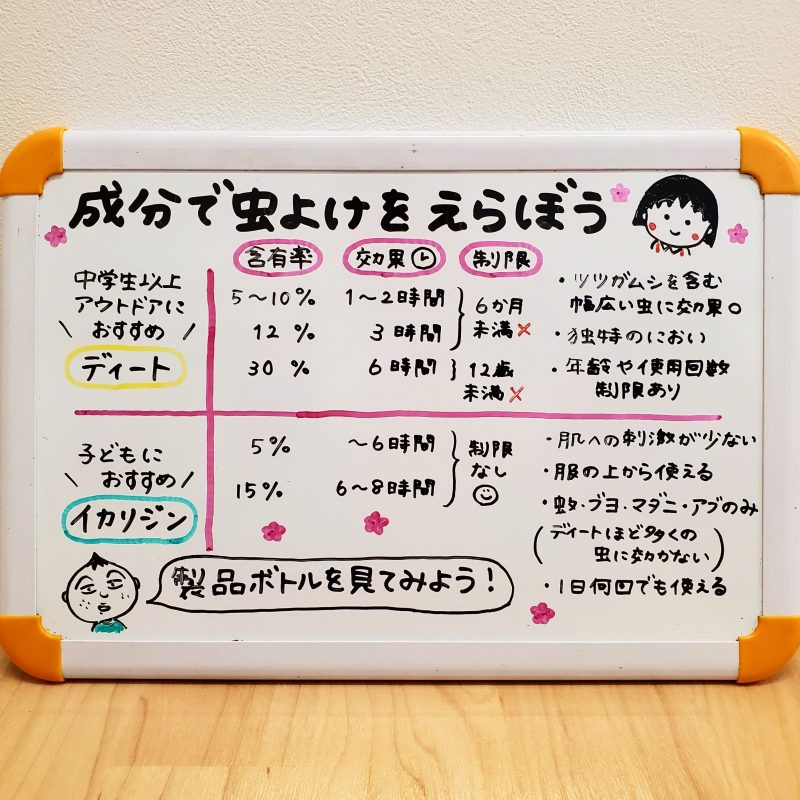 成分で虫よけをえらぼう
含有率 効果 制限
中学生以上
アウトドアに
\ おすすめ /
ディート
5～10% 1～2時間
12 % 3時間
6か月
未満×
30 % 6時間
12歳
未満×
・ツツガムシを含む
幅広い虫に効果○
・独特のにおい
・年齢や使用回数
制限あり
子どもに
\ おすすめ /
イカリジン
5% ～6時間
15% 6～8時間
制限
なし
・肌への刺激が少ない
・服の上から使える
・蚊・ブヨ・マダニ・アブのみ
(ディートほど多くの
虫に効かない)
・1日何回でも使える
製品ボトルを見てみよう!